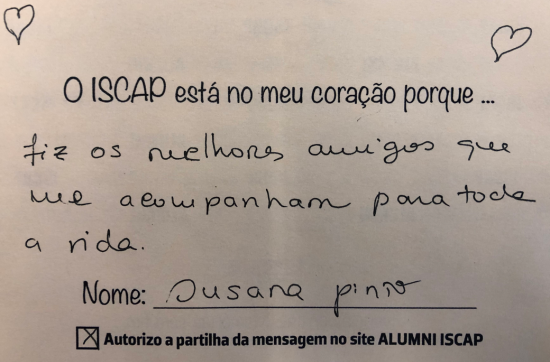 O ISCAP está no meu coração porque ...
fiz os melhores amigos que
me acompanham para toda
a vida.
Nome: Susana pinto
Autorizo a partilha da mensagem no site ALUMNI ISCAP